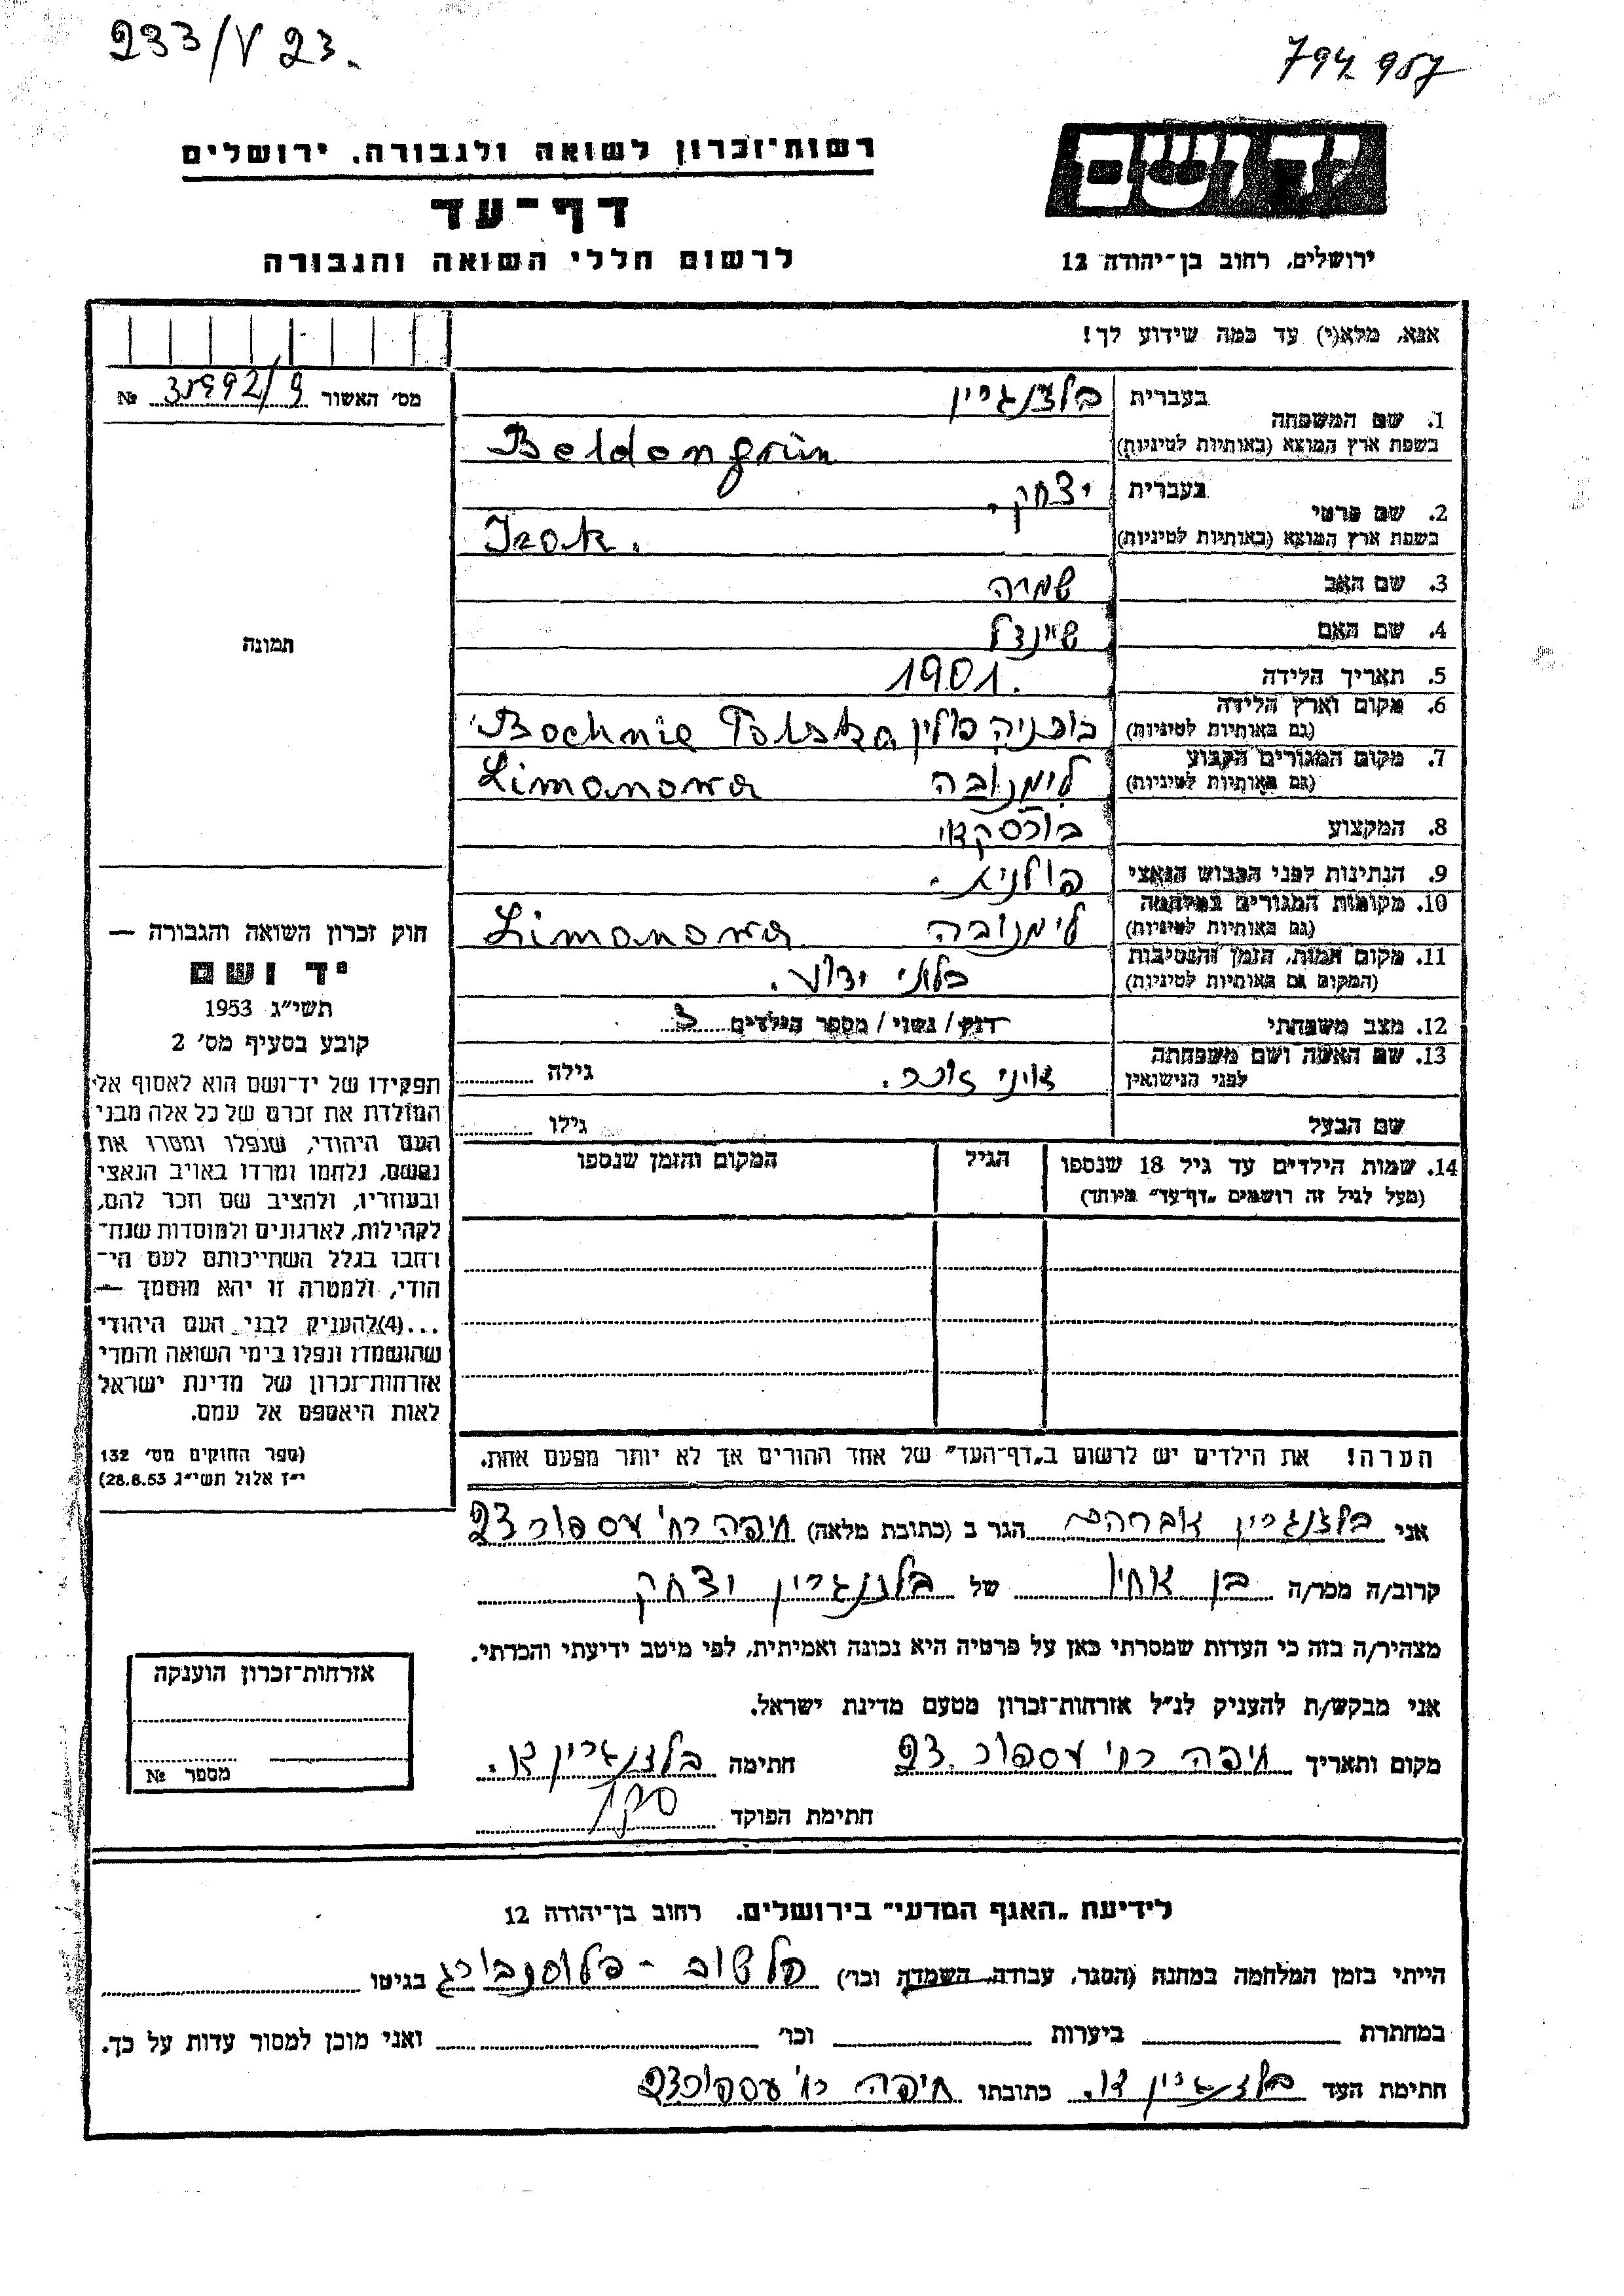 233/V 23.
794.957
רשות־זכרון לשואה ולגבורה, ירושלים
דף־עד
לרשום חללי השואה והגבורה
יד ושם
ירושלים, רחוב בן־יהודה 12
אנא, מלא(י) עד כמה שידוע לך!
מס׳ האשור 35992/9 №
תמונה
1. שם המשפחה
בעברית בלדנגרין
בשפת ארץ המוצא (באותיות לטיניות) Beldengrün
2. שם פרטי
בעברית יצחק.
בשפת ארץ המוצא (באותיות לטיניות) Izak.
3. שם האב שמריה
4. שם האם שיינדל
5. תאריך הלידה 1901.
6. מקום וארץ הלידה
(גם באותיות לטיניות) בוכניה פולין Bochnie Polska
7. מקום המגורים הקבוע
(גם באותיות לטיניות) לימנובה Limanowa
8. המקצוע בורסקאי
9. הנתינות לפני הכבוש הנאצי פולנית.
10. מקומות המגורים במלחמה
(גם באותיות לטיניות) לימנובה Limanowa
11. מקום המות, הזמן והנסיבות
(המקום גם באותיות לטיניות) בלתי ידוע.
12. מצב משפחתי רווק / נשוי / מספר הילדים
13. שם האשה ושם משפחתה
לפני הנישואין גילה
שם הבעל גילו
14. שמות הילדים עד גיל 18 שנספו הגיל המקום והזמן שנספו
(מעל לגיל זה רושמים „דף־עד״ מיוחד)
הערה! את הילדים יש לרשום ב„דף־העד״ של אחד ההורים אך לא יותר מפעם אחת.
חוק זכרון השואה והגבורה —
יד ושם
תשי״ג 1953
קובע בסעיף מס׳ 2
תפקידו של יד־ושם הוא לאסוף אל
המולדת את זכרם של כל אלה מבני
העם היהודי, שנפלו ומסרו את
נפשם, נלחמו ומרדו באויב הנאצי
ובעוזריו, ולהציב שם וזכר להם,
לקהילות, לארגונים ולמוסדות שנח־
רחבו בגלל השתייכותם לעם הי־
הודי, ולמטרה זו יהא מוסמך —
...(4)להעניק לבני העם היהודי
שהושמדו ונפלו בימי השואה והמרי
אזרחות־זכרון של מדינת ישראל
לאות היאספם אל עמם.
(ספר החוקים מס׳ 132
י״ז אלול תשי״ג 28.8.53)
אני בלדנגרין אברהם הגר ב (כתובת מלאה) חיפה רח׳ עספור 23
קרוב/ה מכר/ה בן אחיו של בלדנגרין יצחק
מצהיר/ה בזה כי העדות שמסרתי כאן על פרטיה היא נכונה ואמיתית, לפי מיטב ידיעתי והכרתי.
אני מבקש/ת להעניק לנ״ל אזרחות־זכרון מטעם מדינת ישראל.
מקום ותאריך חיפה רח׳ עספור 23. חתימה בלדנגרין א.
חתימת הפוקד
אזרחות־זכרון הוענקה
מספר №
לידיעת „האגף המדעי״ בירושלים. רחוב בן־יהודה 12
הייתי בזמן המלחמה במחנה (הסגר, עבודה, השמדה וכו׳) פלשוב - פלוסנבורג בגיטו
במחתרת ביערות וכו׳ ואני מוכן למסור עדות על כך.
חתימת העד בלדנגרין א. כתובתו חיפה רח׳ עספור 23